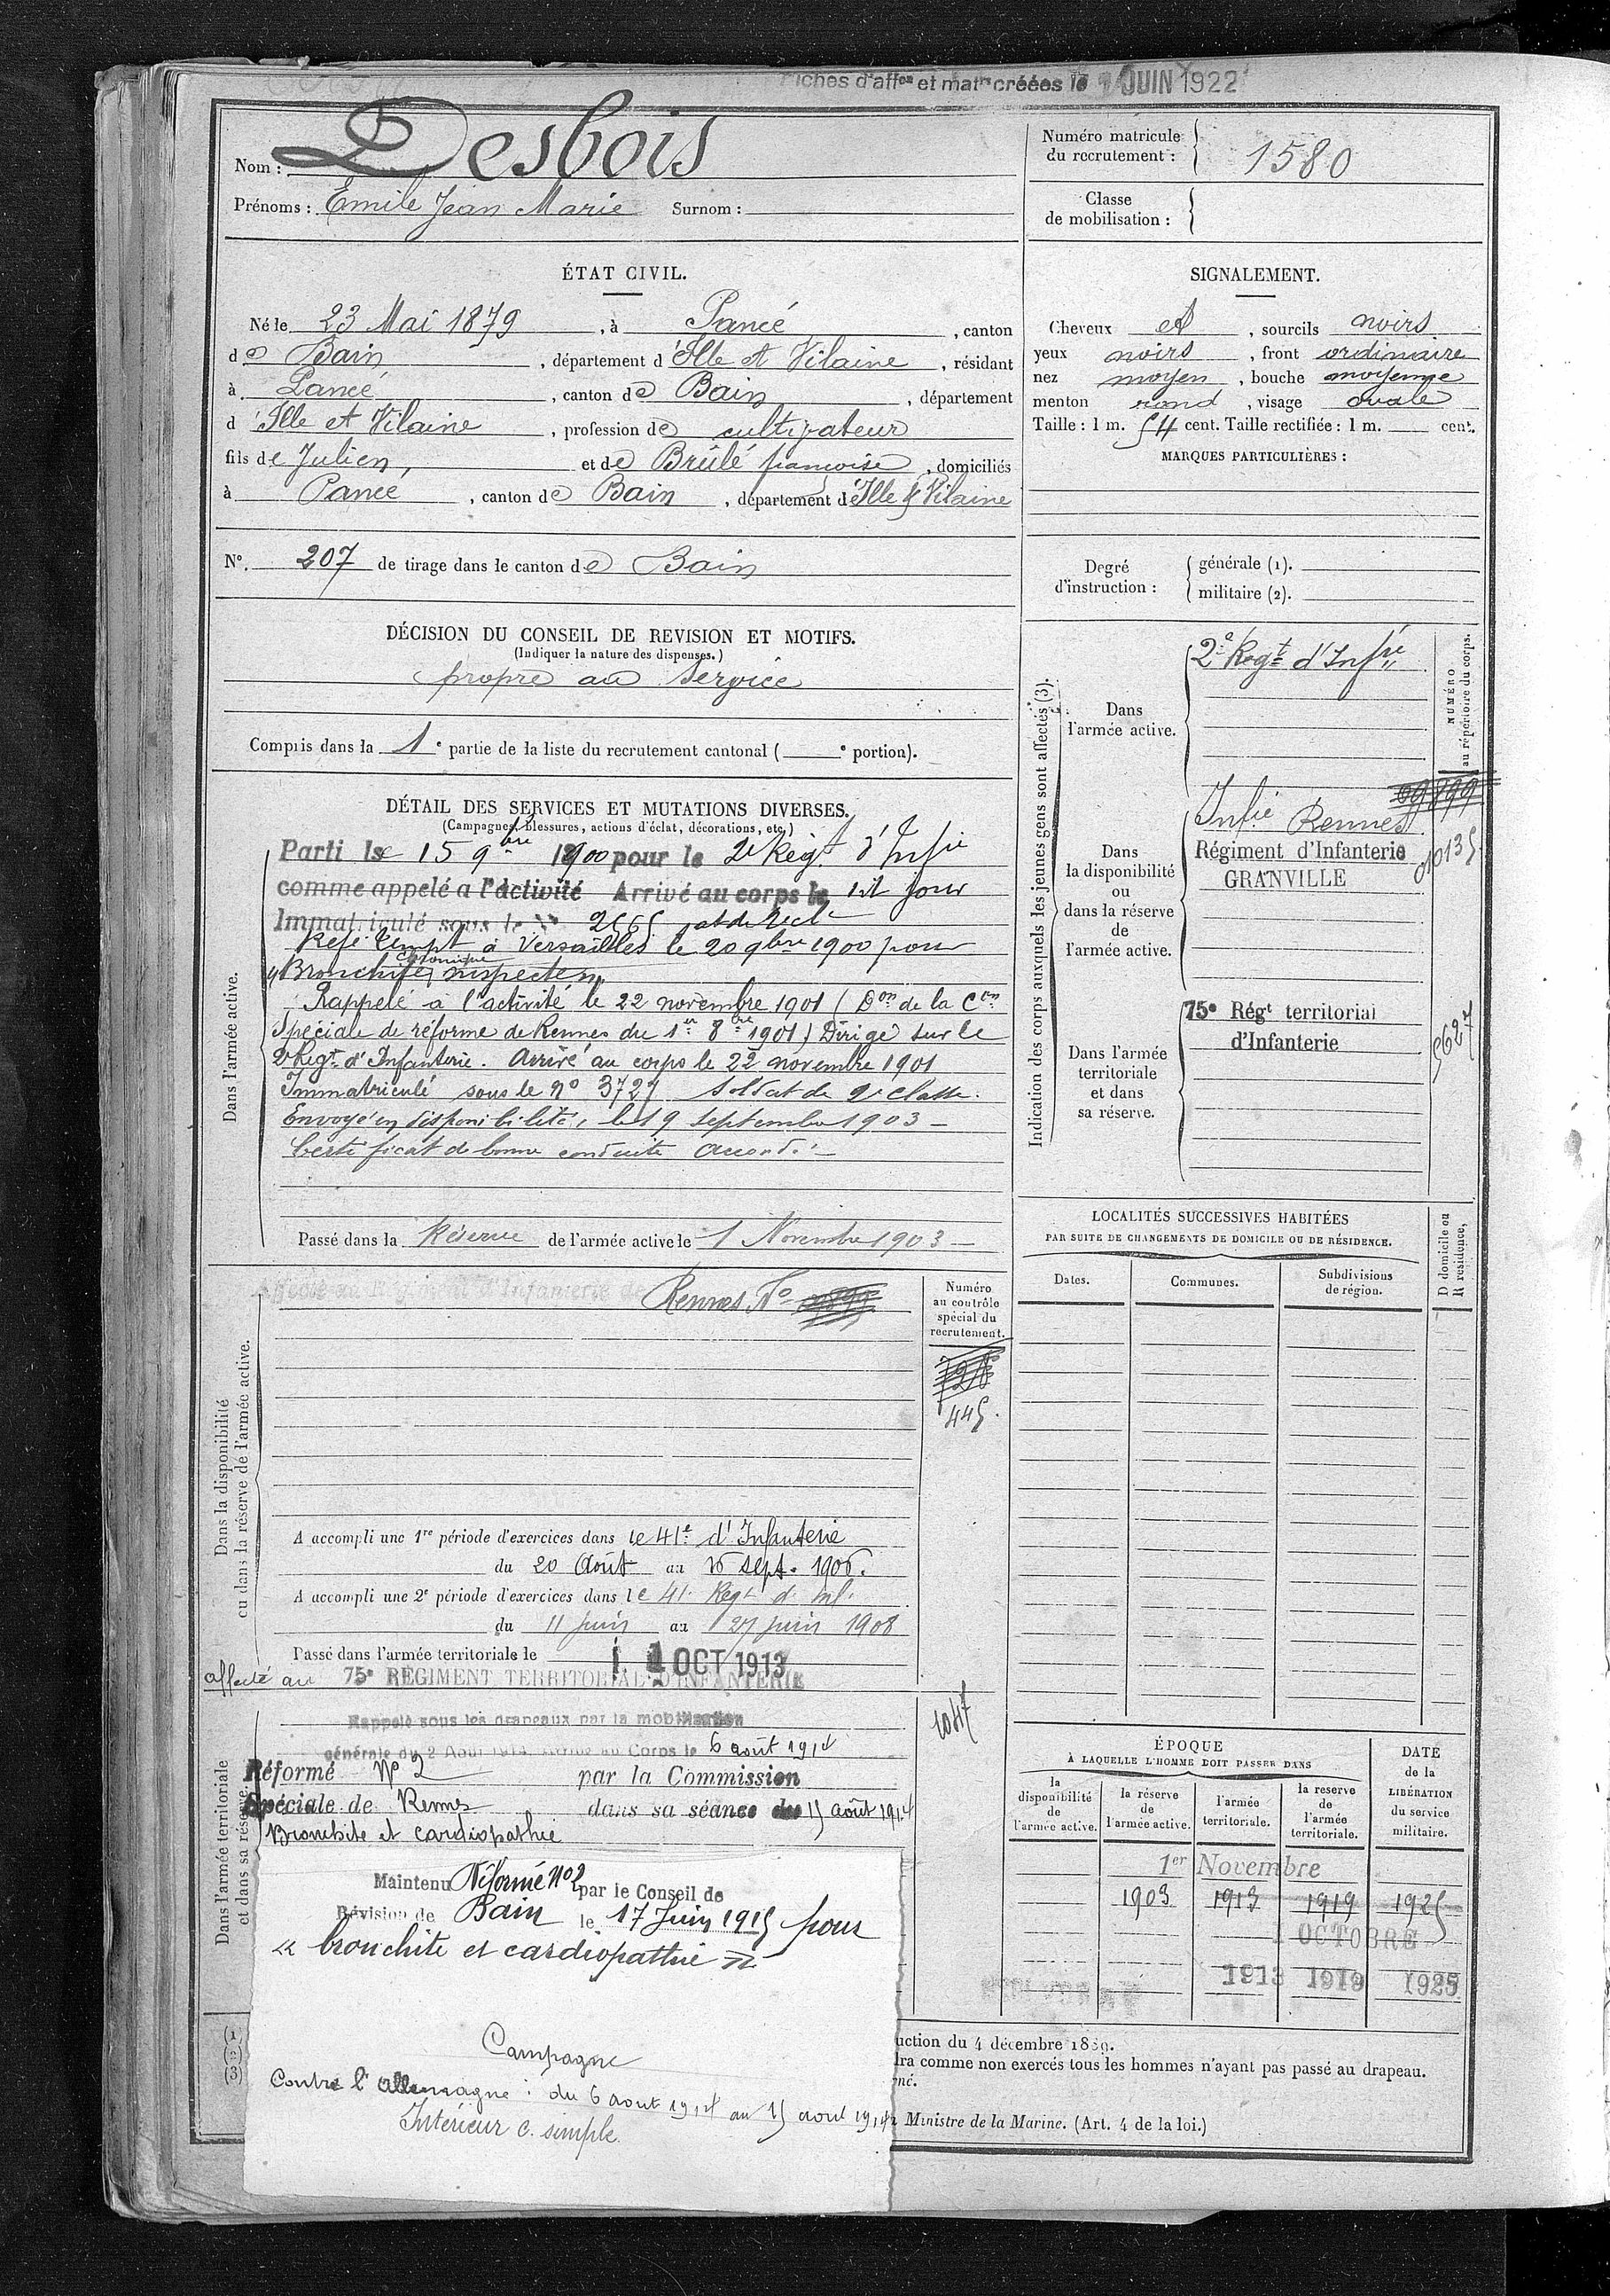 Fiches d'affon et matre créées le JUIN 1922
Nom : Desbois
Prénoms : Emile Jean Marie Surnom :
Numéro matricule
du recrutement : 1580
Classe
de mobilisation :
ÉTAT CIVIL.
Né le 23 Mai 1879, à Pancé, canton
de Bain, département d'Ille et Vilaine, résidant
à Pancé, canton de Bain, département
d'Ille et Vilaine, profession de cultivateur
fils de Julien, et de Brûlé françoise, domiciliés
à Pancé, canton de Bain, département d'Ille & Vilaine
SIGNALEMENT.
Cheveux et, sourcils noirs
yeux noirs, front ordinaire
nez moyen, bouche moyenne
menton rond, visage ovale
Taille : 1 m. 54 cent. Taille rectifiée : 1 m. cent.
MARQUES PARTICULIÈRES :
N°. 207 de tirage dans le canton de Bain
Degré
d'instruction :
générale (1).
militaire (2).
DÉCISION DU CONSEIL DE REVISION ET MOTIFS.
(Indiquer la nature des dispenses.)
propre au service
Compris dans la 1e partie de la liste du recrutement cantonal ( e portion).
DÉTAIL DES SERVICES ET MUTATIONS DIVERSES.
(Campagnes, blessures, actions d'éclat, décorations, etc.)
Dans l'armée active.
Parti le 15 9bre 1900 pour le 2e Régt d'Infie
comme appelé a l'activité Arrivé au corps le dit jour
Immatriculé sous le N°
Réfé tempt à Versailles le 20 9bre 1900 pour
"Bronchite chronique suspecte"
Rappelé à l'activité le 22 novembre 1901 (Don de la Con
Spéciale de réforme de Rennes du 1er 8bre 1901) Dirigé sur le
2e Régt d'Infanterie. Arrivé au corps le 22 novembre 1901
Immatriculé sous le n° 3727 soldat de 2e classe.
Envoyé en disponibilité, le 19 septembre 1903 –
Certificat de bonne conduite accordé –
Passé dans la Réserve de l'armée active le 1 Novembre 1903 –
Indication des corps auxquels les jeunes gens sont affectés (3).
NUMÉRO
au répertoire du corps.
Dans
l'armée active.
2e Regt d'Infie
Dans
la disponibilité
ou
dans la réserve
de
l'armée active.
Infie Rennes
Régiment d'Infanterie
GRANVILLE
Dans l'armée
territoriale
et dans
sa réserve.
75e Régt territorial
d'Infanterie
5627
LOCALITÉS SUCCESSIVES HABITÉES
PAR SUITE DE CHANGEMENTS DE DOMICILE OU DE RÉSIDENCE.
Dates.
Communes.
Subdivisions
de région.
D domicile ou
R résidence,
Dans la disponibilité
ou dans la réserve de l'armée active.
Affecté au Régiment d'Infanterie de Rennes N°
Numéro
au contrôle
spécial du
recrutement.
728
445.
A accompli une 1re période d'exercices dans le 41e d'Infanterie
du 20 Août au 16 sept. 1906.
A accompli une 2e période d'exercices dans le 41. Regt d. inf.
du 11 juin au 27 juin 1908
Passé dans l'armée territoriale le 1 OCT 1913
affecté au 75e RÉGIMENT TERRITORIAL D'INFANTERIE
Dans l'armée territoriale
et dans sa réserve.
Rappelé sous les drapeaux par la mobilisation
générale du 2 Août 1914 Arrivé au Corps le 6 août 1914
Réformé N° 2 par la Commission
Spéciale de Rennes dans sa séance du 15 août 1914
Bronchite et cardiopathie
Maintenu Réformé n°2 par le Conseil de
Révision de Bain le 17 Juin 1915 pour
« bronchite et cardiopathie »
Campagne
Contre l'allemagne : du 6 aout 1914 au 15 aout 1914
Intérieur c. simple.
ÉPOQUE
À LAQUELLE L'HOMME DOIT PASSER DANS
la
disponibilité
de
l'armée active.
la réserve
de
l'armée active.
l'armée
territoriale.
la reserve
de
l'armée
territoriale.
DATE
de la
LIBÉRATION
du service
militaire.
1er Novembre
1903 1913 1919 1925
1 OCTOBRE
1913 1919 1925
(1)
(2)
(3)
uction du 4 décembre 1889.
dra comme non exercés tous les hommes n'ayant pas passé au drapeau.
né.
Ministre de la Marine. (Art. 4 de la loi.)